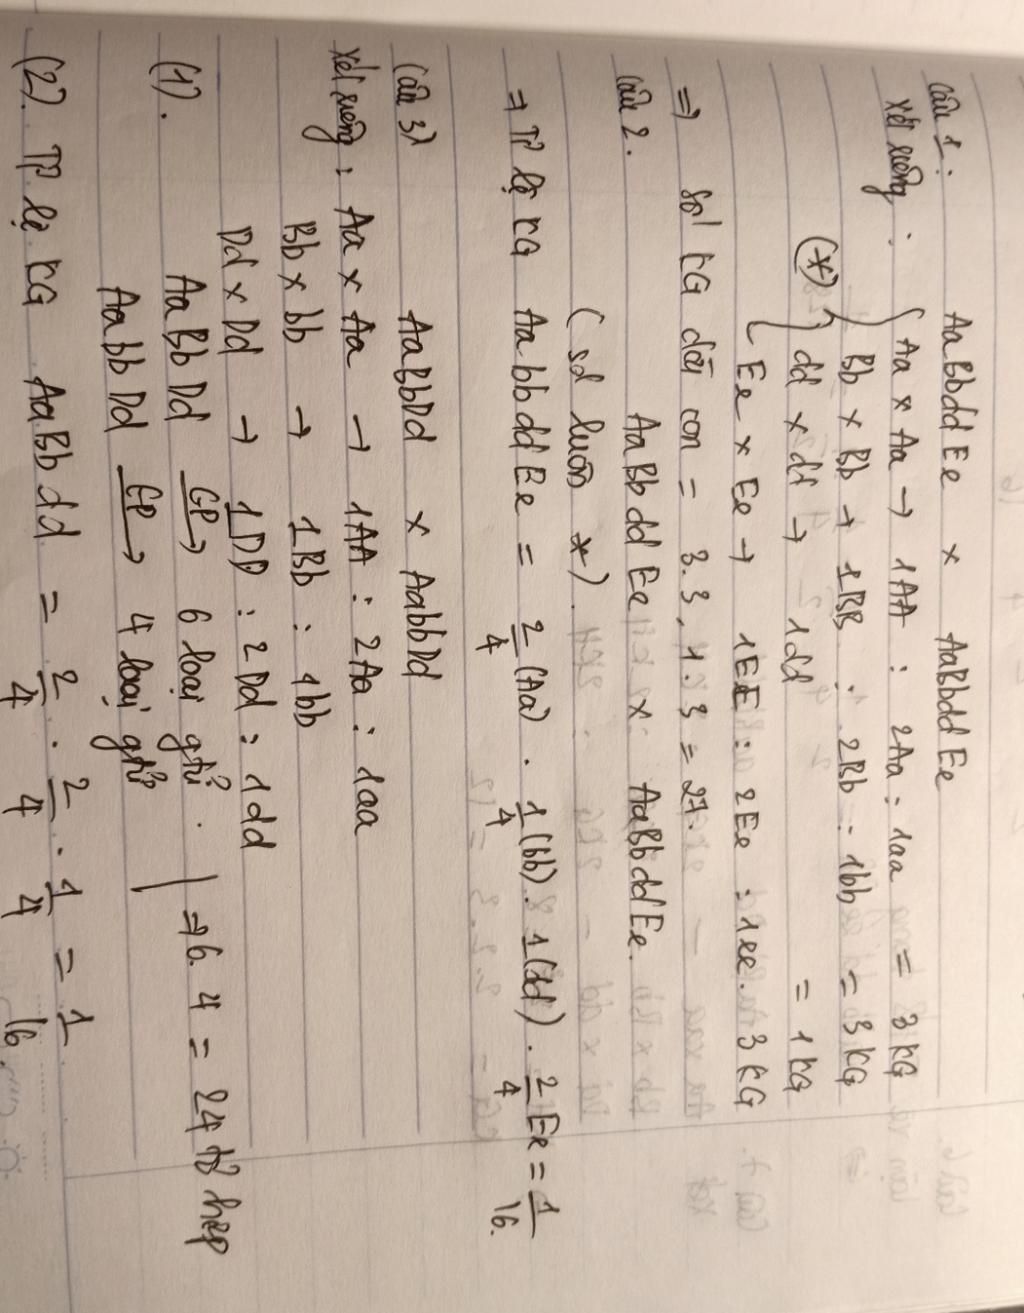 Câu 1: AaBbddEe x AaBbddEe
Xét riêng: Aa x Aa → 1AA : 2Aa : 1aa = 3KG
Bb x Bb → 1BB : 2Bb : 1bb = 3KG
(*) dd x dd → 1dd = 1KG
Ee x Ee → 1EE : 2Ee : 1ee. 3KG
=> Số KG đời con = 3.3.1.3 = 27.
Câu 2. AaBbddEe x AaBbddEe.
(sd luôn *).
=> Tỉ lệ KG AabbddEe = 2/4 (Aa) . 1/4 (bb) . 1(dd) . 2/4 Ee = 1/16.
Câu 3) AaBbDd x AabbDd
Xét riêng: Aa x Aa → 1AA : 2Aa : 1aa
Bb x bb → 1Bb : 1bb
Dd x Dd → 1DD : 2Dd : 1dd
(1). AaBbDd GP→ 6 loại gtử.
AabbDd GP→ 4 loại gtử => 6.4 = 24 tổ hợp
(2). Tỉ lệ KG AaBbdd = 2/4 . 2/4 . 1/4 = 1/16